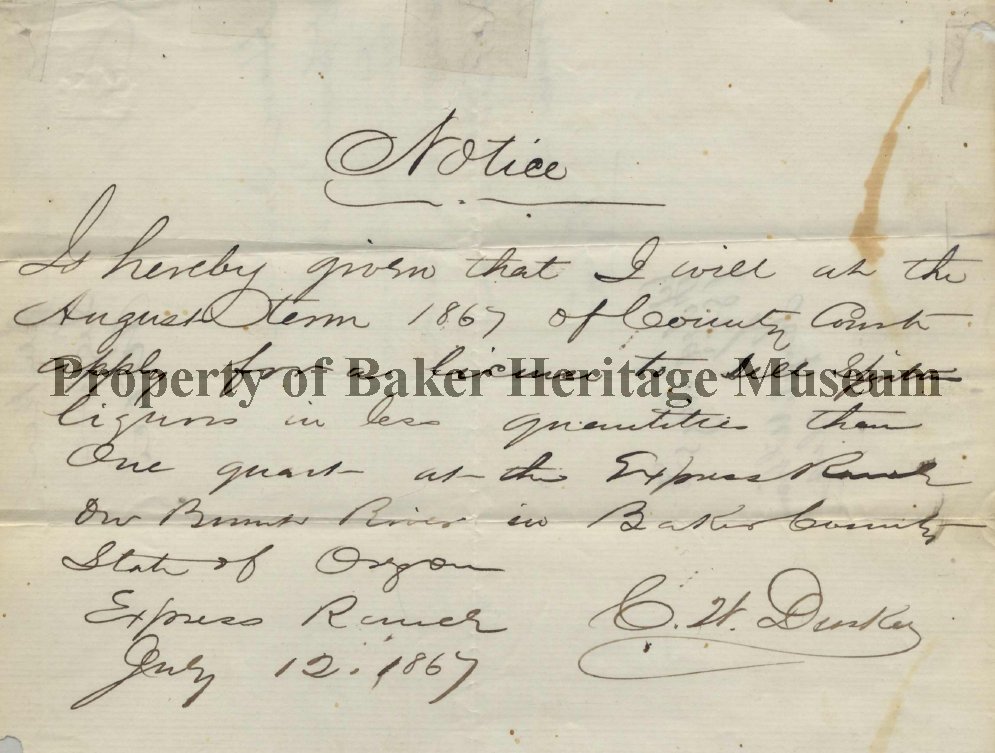 Notice
Is hereby given that I will at the
August term 1867 of County Court
apply for a license to sell Spirits
Property of Baker Heritage Museum
liquors in less quantities than
One quart at the Express Ranch
On Burnt River in Baker County
State of Oregon
Express Ranch
C. W. Durkey
July 12. 1867